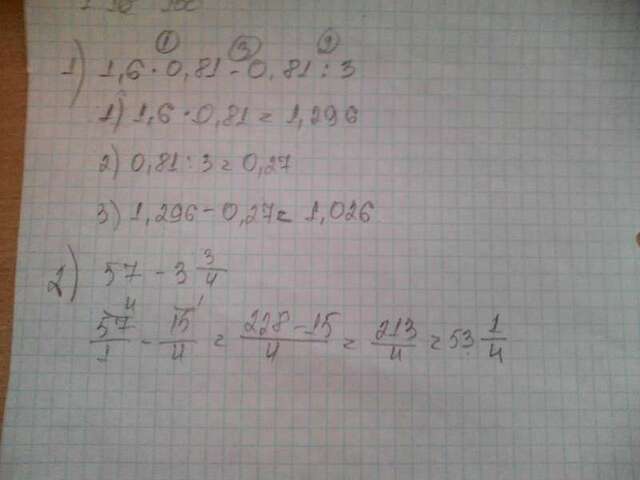 ① ③ ②
1) 1,6 · 0,81 - 0,81 : 3
1) 1,6 · 0,81 = 1,296
2) 0,81 : 3 = 0,27
3) 1,296 - 0,27 = 1,026
2) 57 - 3 3/4
57/1 (4) - 15/4 (1) = 228 - 15/4 = 213/4 = 53 1/4